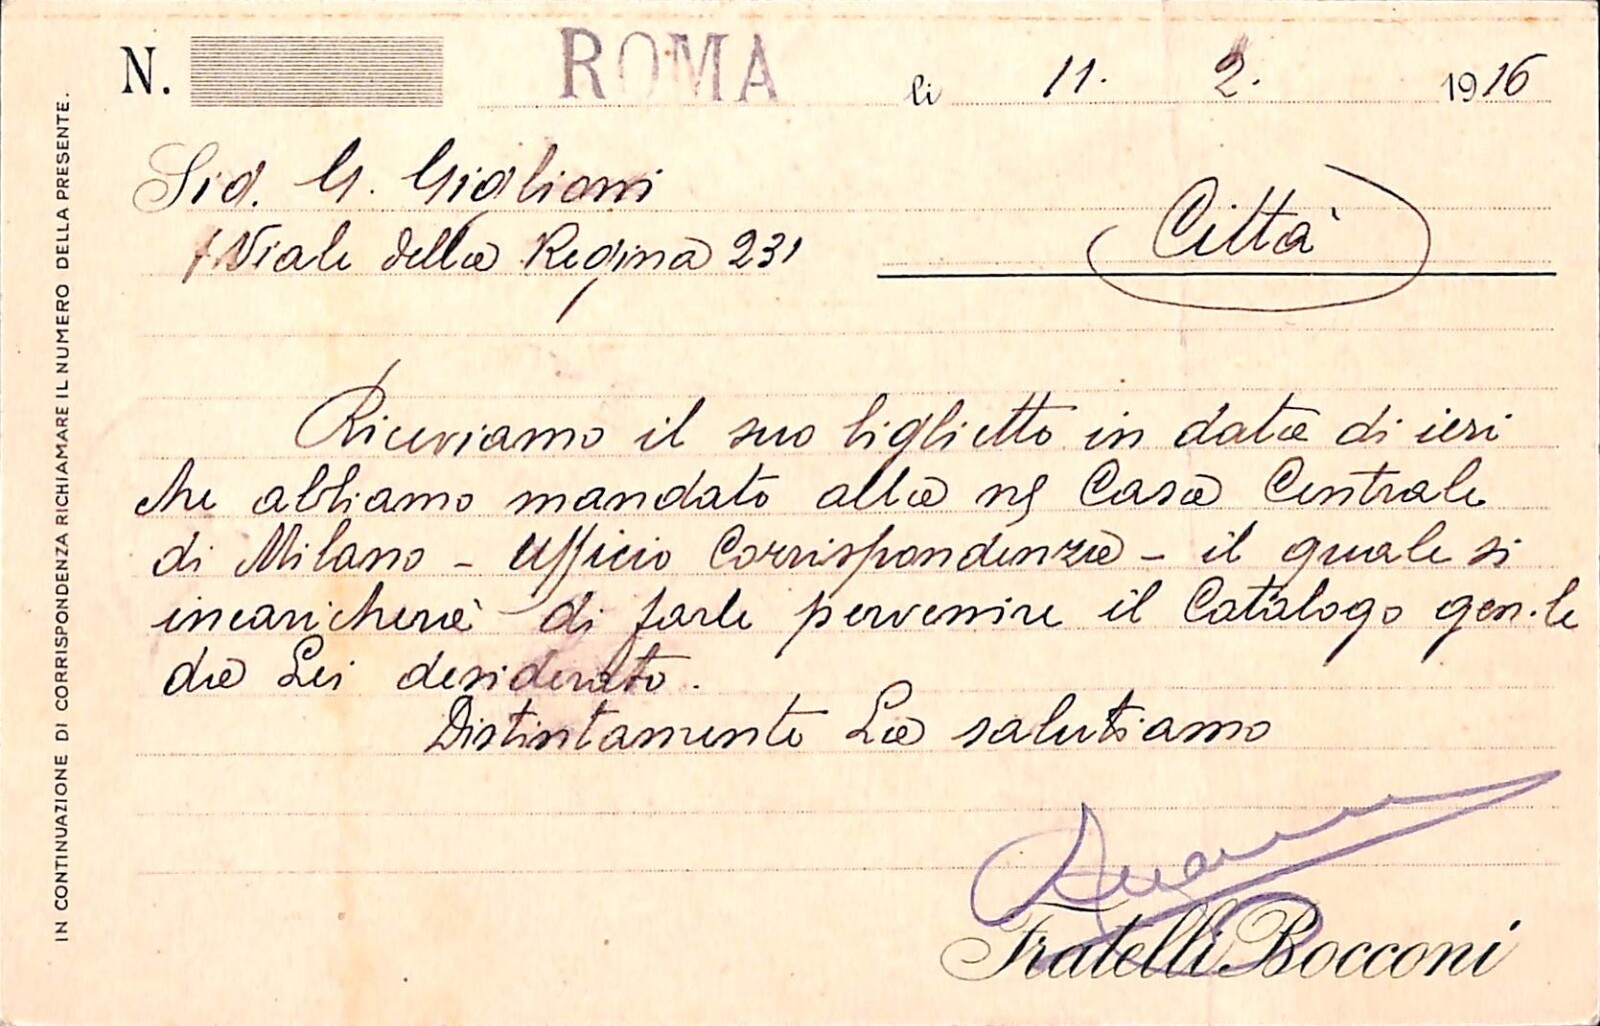 N. ROMA li 11. 2. 1916
Sig. G. Giglioni
Viale della Regina 231
Città
Riceviamo il suo biglietto in data di ieri
che abbiamo mandato alla ns Casa Centrale
di Milano - Ufficio Corrispondenza - il quale si
incaricherà di farle pervenire il Catalogo gen.le
da Lei desiderato.
Distintamente La salutiamo
Fratelli Bocconi
IN CONTINUAZIONE DI CORRISPONDENZA RICHIAMARE IL NUMERO DELLA PRESENTE.